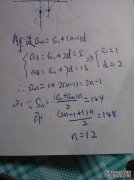 解:设 an = a1+(n-1)d
a3 = a1+2d = 5
a8 = a1+7d = 15
a1 = 1
d = 2
∴ an = 1+2(n-1) = 2n-1
2, ∴ Sn = (a1+an)n/2 = 144
即 (2n-1+1)n/2 = 144
n = 12